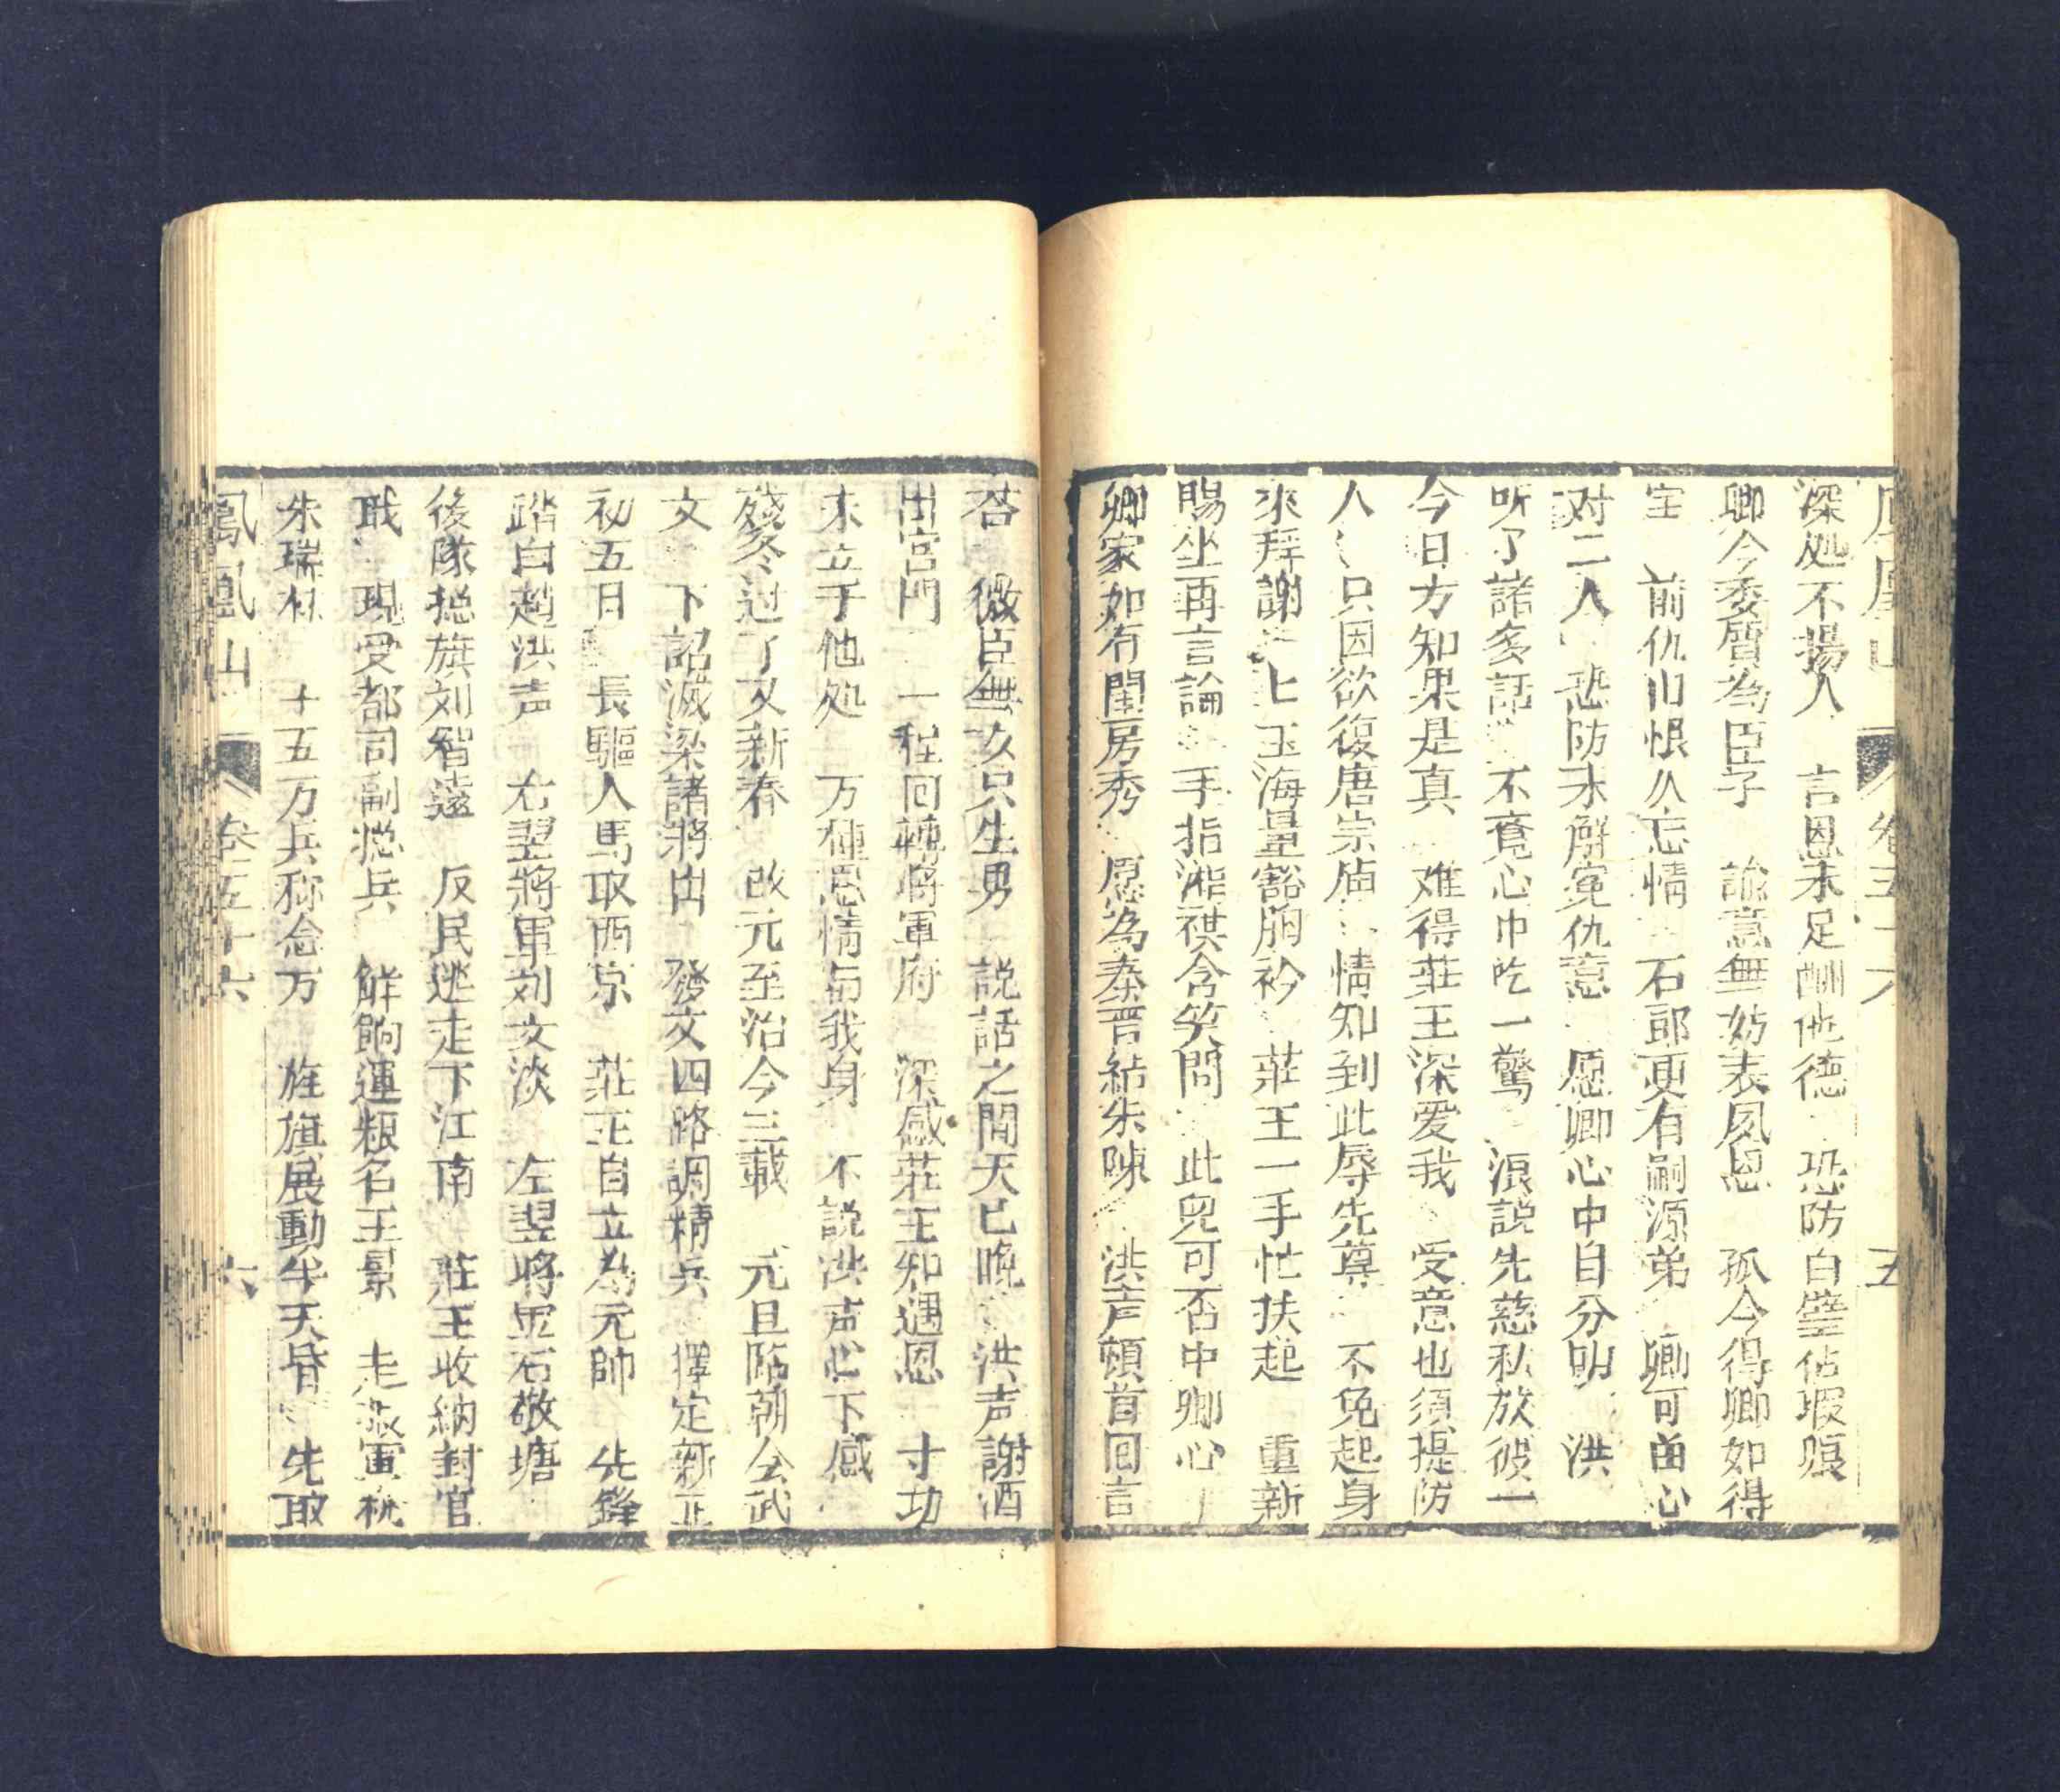 鳳凰山 卷五十六 五
深処不揚人 言恩未足酬他德 恐防白璧佔瑕痕
卿今委屈為臣子 諭意無妨表夙恩 孤今得卿如得
宝 前仇旧恨久忘情 石郎更有嗣源弟 卿可留心
对二人 恐防未解冤仇意 愿卿心中自分明 洪
听了諸多話 不覚心中吃一驚 浪說先慈私放彼一
今日方知果是真 难得莊王深爱我 受意也須提防
人 只因欲復唐宗庙 情知到此辱先尊 不免起身
來拜謝 上玉海量豁胸衿 莊王一手忙扶起 重新
賜坐再言論 手指湘祺含笑問 此児可否中卿心
卿家如有閨房秀 愿為秦晋結朱陳 洪声頓首回言
答 微臣無女只生男 説話之間天已晚 洪声謝酒
出宮門 一程回轉將軍府 深感莊王知遇恩 寸功
未立于他処 万種恩情与我身 不説洪声心下感
残冬过了又新春 改元至治今三載 元旦臨朝会武
文 下詔滅梁諸將出 發文四路調精兵 擇定新正
初五日 長驅人馬取西京 莊王自立為元帥 先鋒
踏白趙洪声 右翌將軍刘文淡 左翌將軍石敬塘
後隊揔旗刘智遠 反民逃走下江南 莊王收納封官
职 現受都司副揔兵 觧餉運粮名王景 走報軍机
朱瑞林 十五万兵称念万 旌旗展動半天昏 先取
鳳凰山 卷五十六 六